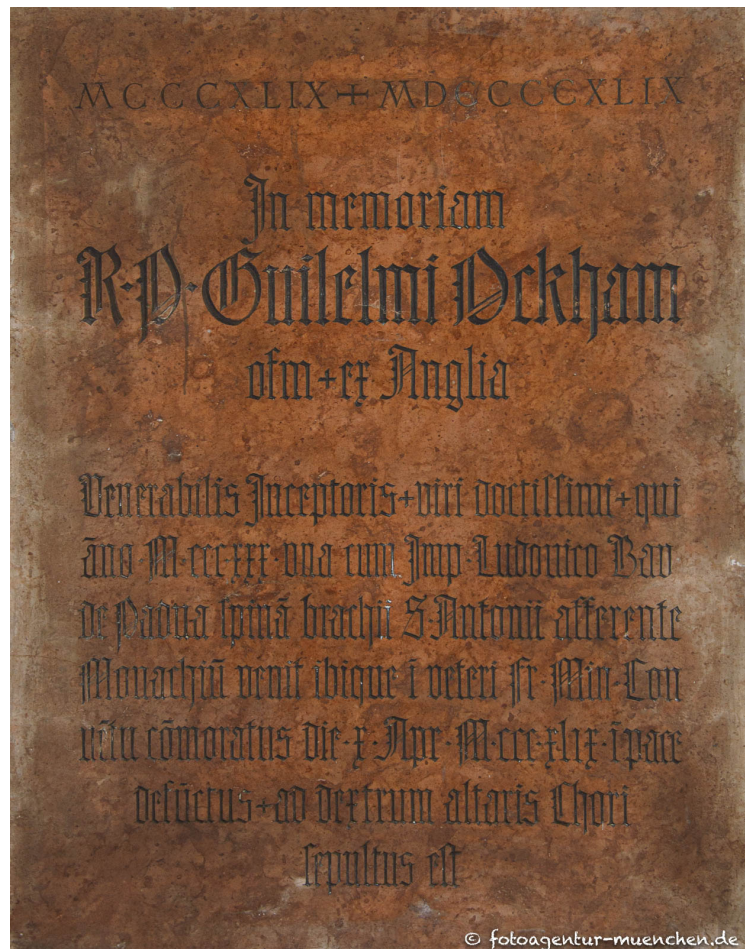 MCCCXLIX + MDCCCCXLIX
In memoriam
R·P·Guilelmi Ockham
ofm + ex Anglia
Venerabilis Inceptoris + viri doctissimi + qui
āno M·cccxxx·vna cum Imp·Ludouico Bau
de Padua spinā brachii S·Antonii afferente
Monachiū venit ibique ī veteri Fr·Min·Con
uētu cōmoratus die·x·Apr·M·ccc·xlix·ī pace
defūctus + ad dextrum altaris Chori
sepultus est
© fotoagentur-muenchen.de